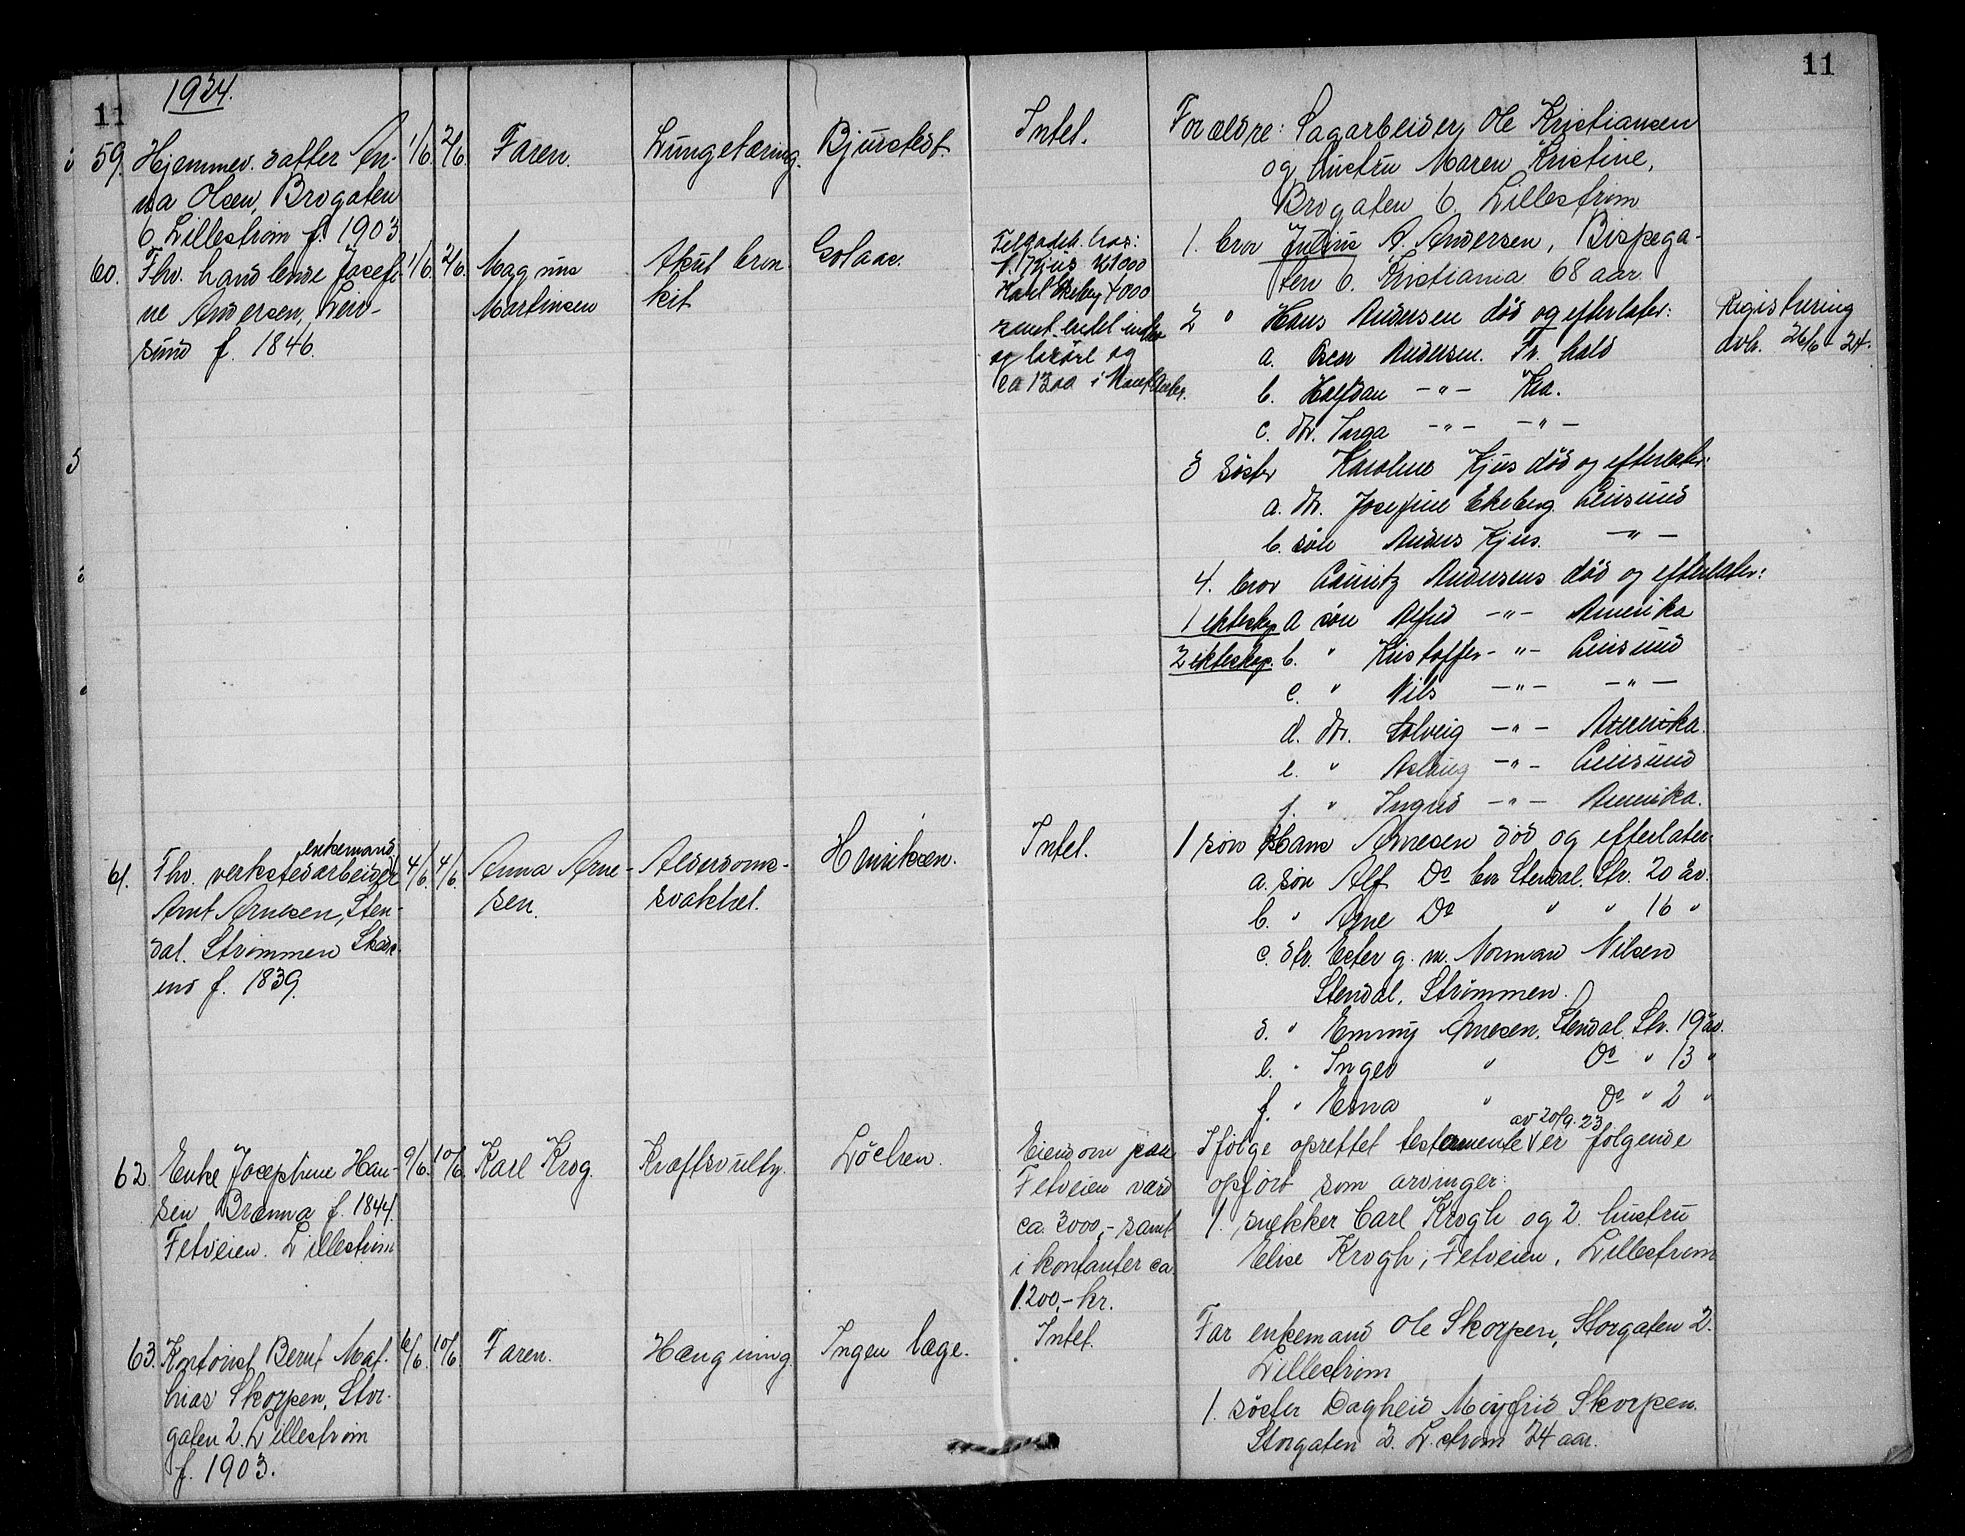 11
1924.
11
59. Hjemmev. datter An-
na Olsen, Brogaten
6 Lillestrøm f. 1903
1/6. 2/6. Faren. Lungetæring. Bjurstedt. Intet.
Forældre: Sagarbeider Ole Kristiansen
og hustru Maren Kristine,
Brogaten 6. Lillestrøm
60. Fhv. handlende Josefi-
ne Andersen, Leir-
sund f. 1846.
1/6. 2/6. Magnus
Martinsen
Akut bron
kit
Golaae.
Tilgodeh. hos:
A. Kjus 21000
Karl Ekeberg 4000
samt endel indbo
og løsøre og
ca 1300 i
1. bror Julius A. Andersen, Bispega-
ten 6. Kristiania 68 aar
2 " Hans Andersen død og efterlater:
a. Oscar Andersen. Fr.hald
b. Halfdan -"- Kra.
c. dtr. Inga -"- -"-
3 søster Karoline Kjus død og efterlater:
a. dtr. Josefine Ekeberg Leirsund
b. søn Anders Kjus. -"-
4. bror Lauritz Andersens død og efterlater:
1 ekteskap a søn Alfred -"- Amerika
2 ekteskap. b. " Kristoffer -"- Leirsund
c. " Nils -"- -"-
d. dtr. Solveig -"- Amerika.
e. " Aslaug -"- Leirsund
f. " Ingrid -"- Amerika.
Registrering
avh. 26/6-24.
61. Fhv. verkstedarbeider
enkemand
Arnt Arnesen, Sten-
dal. Strømmen Skæds-
mo f. 1839.
4/6. 4/6. Anna Arne-
sen.
Alderdoms-
svakhet.
Henriksen. Intet.
1 søn Hans Arnesen død og efterlater:
a. søn Alf Do bor Stendal. Str. 20 år.
b. " Arne Do " " 16 "
c. dtr. Ester g. m. Norman Nilsen
Stendal, Strømmen.
d. " Emmy Arnesen. Stendal. Str. 19 år.
e. " Inger " Do " 13 "
f. " Erna " Do " 2 "
62. Enke Josephine Han-
sen Brænna f. 1844.
Fetveien. Lillestrøm
9/6. 10/6. Karl Krog. Kræftsvulty. Løchen.
Eiendom paa
Fetveien værd
ca. 3000,- samt
i kontanter ca.
1.200,- kr.
av 20/9.23
Ifølge oprettet testamente er følgende
opført som arvinger:
1. snekker Carl Krogh og 2. hustru
Elise Krogh, Fetveien, Lillestrøm
63. Kontorist Bernt Mat-
hias Skorpen, Stor-
gaten 2. Lillestrøm
f. 1903.
6/6. 10/6. Faren. Hængning. Ingen læge. Intet.
Far enkemand Ole Skorpen, Storgaten 2.
Lillestrøm
1. søster Dagheid Møyfrid Skorpen
Storgaten 2. L.strøm 24 aar.